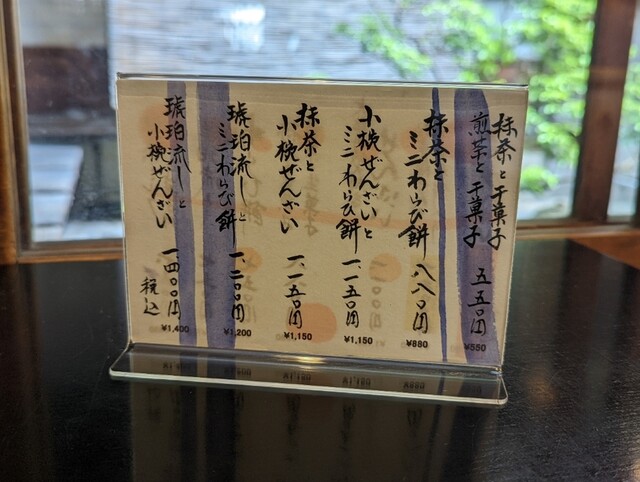 抹茶と干菓子
煎茶と干菓子 五五〇円
¥550
抹茶と
ミニわらび餅 八八〇円
¥880
小椀ぜんざいと
ミニわらび餅 一、一五〇円
¥1,150
抹茶と
小椀ぜんざい 一、一五〇円
¥1,150
琥珀流しと
ミニわらび餅 一、二〇〇円
¥1,200
琥珀流しと
小椀ぜんざい 一、四〇〇円
¥1,400
税込